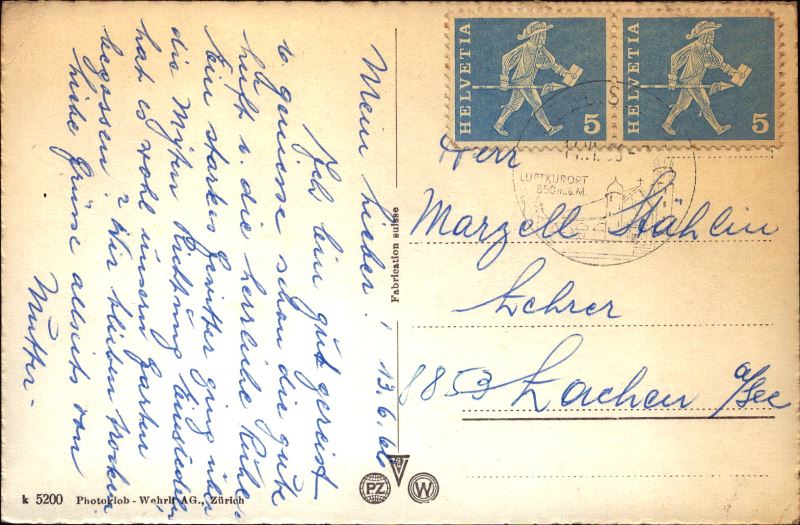 Mein Lieber! 13.6.66
Ich bin gut gereist
u geniesse schon die gute
Luft u. die herrliche Ruhe.
Ein starkes Gewitter ging über
die Mythen Richtung Einsiedeln,
hat es wohl unsern Garten
begossen? Wir blieben trocken
Liebe Grüsse allseits von
Mutter.
HELVETIA 5
HELVETIA 5
LUFTKURORT
850 m.ü.M.
Herr
Marzell Stählin
Lehrer
8853 Lachen a/See
Fabrication suisse
k 5200 Photoglob-Wehrli AG., Zürich
PZ
W